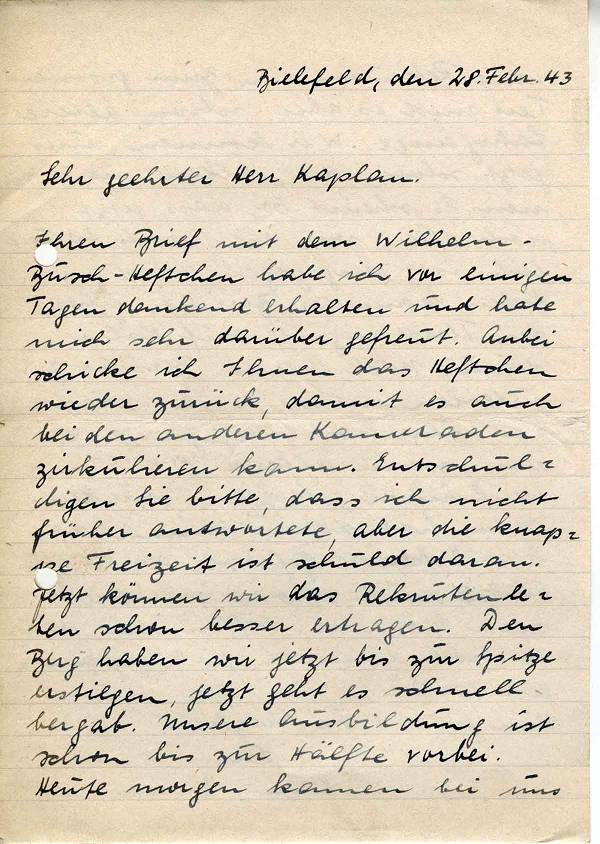 Bielefeld, den 28. Febr. 43
Sehr geehrter Herr Kaplan.
Ihren Brief mit dem Wilhelm-
Busch-Heftchen habe ich vor einigen
Tagen dankend erhalten und habe
mich sehr darüber gefreut. Anbei
schicke ich Ihnen das Heftchen
wieder zurück, damit es auch
bei den anderen Kameraden
zirkulieren kann. Entschul=
digen Sie bitte, dass ich nicht
früher antwortete, aber die knap=
pe Freizeit ist schuld daran.
Jetzt können wir das Rekrutenle=
ben schon besser ertragen. Den
Berg haben wir jetzt bis zur Spitze
erstiegen, jetzt geht es schnell
bergab. Unsere Ausbildung ist
schon bis zur Hälfte vorbei.
Heute morgen kamen bei uns